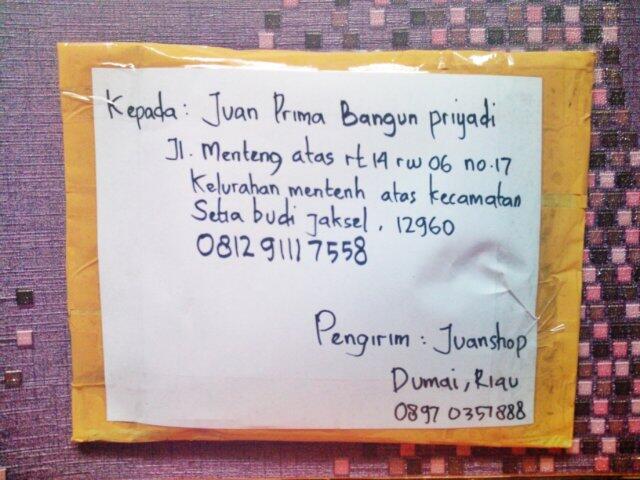 Kepada : Juan Prima Bangun priyadi
Jl. Menteng atas rt 14 rw 06 no.17
Kelurahan mentenh atas kecamatan
Setia budi jaksel, 12960
0812 9111 7558
Pengirim : Juanshop
Dumai, Riau
0897 0357888